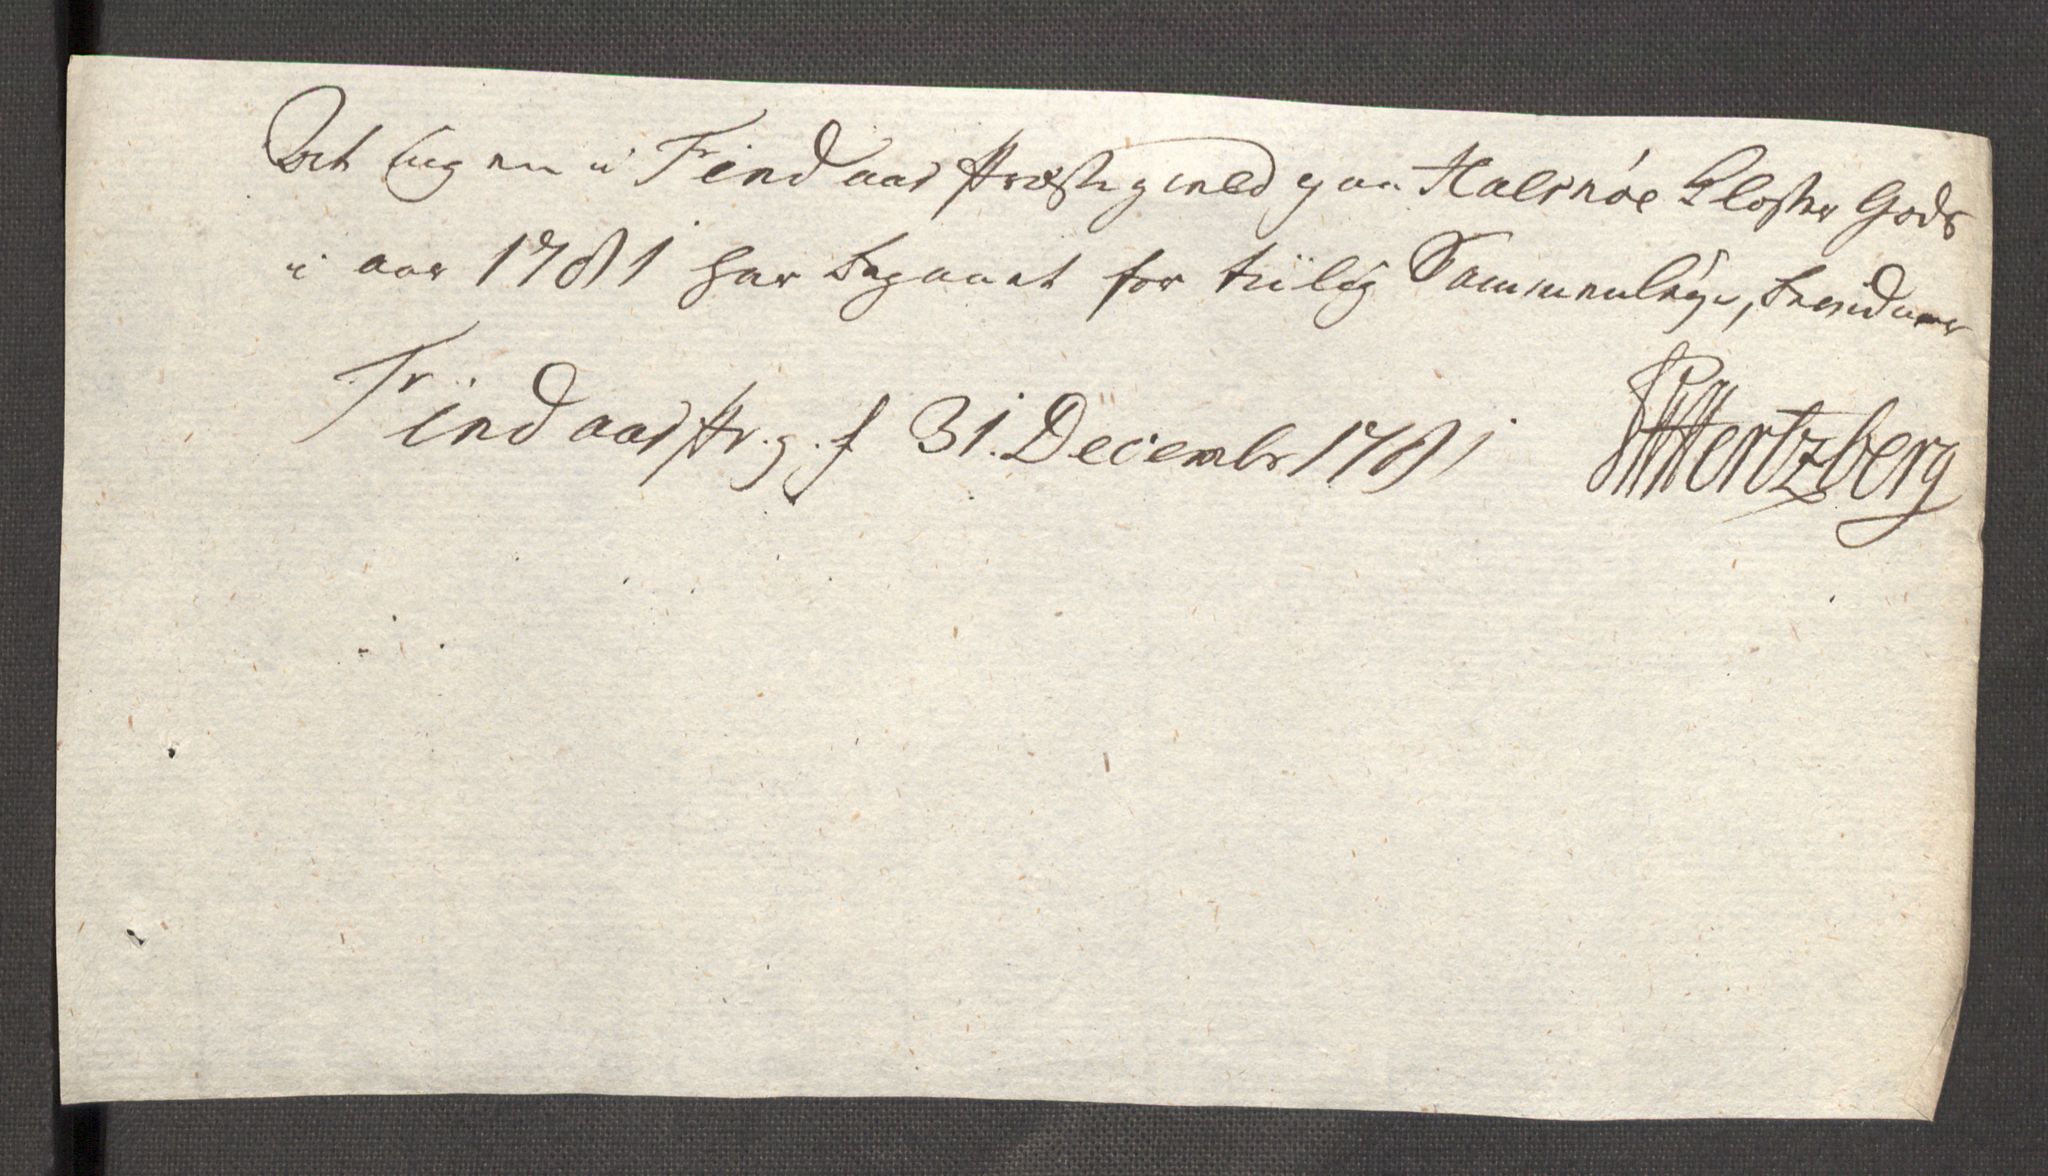 At ingen i Findaas Præstegield paa Halsnöe Kloster Gods
i aar 1781 har begaaet for tiilig Sammenleye, bevidner
Findaas Pr. g. d 31. Decembr 1781 Hertzberg